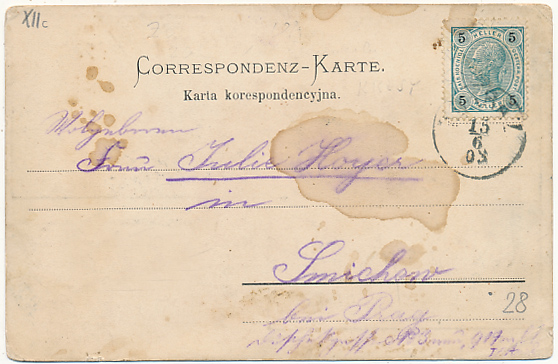 XIIc
5 HELLER 5
5 5
CORRESPONDENZ-KARTE.
Karta korespondencyjna.
15
6
03
Wohlgeboren
Frau Julie Hoyer
in
Smichow
bei Prag
28